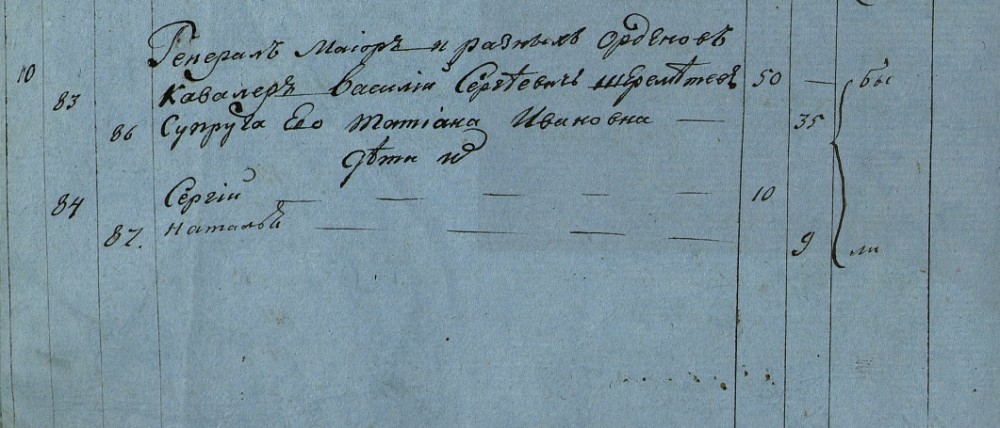 Генералъ Маіоръ и разныхъ Орденовъ
10 83 Кавалеръ Василій Сергѣевичь Шереметевъ 50 — бы
86 Супруга Его Татіана Ивановна — 35
Дѣти ихъ
84 Сергій — — — — — 10
87. Наталья — — — — 9 ли